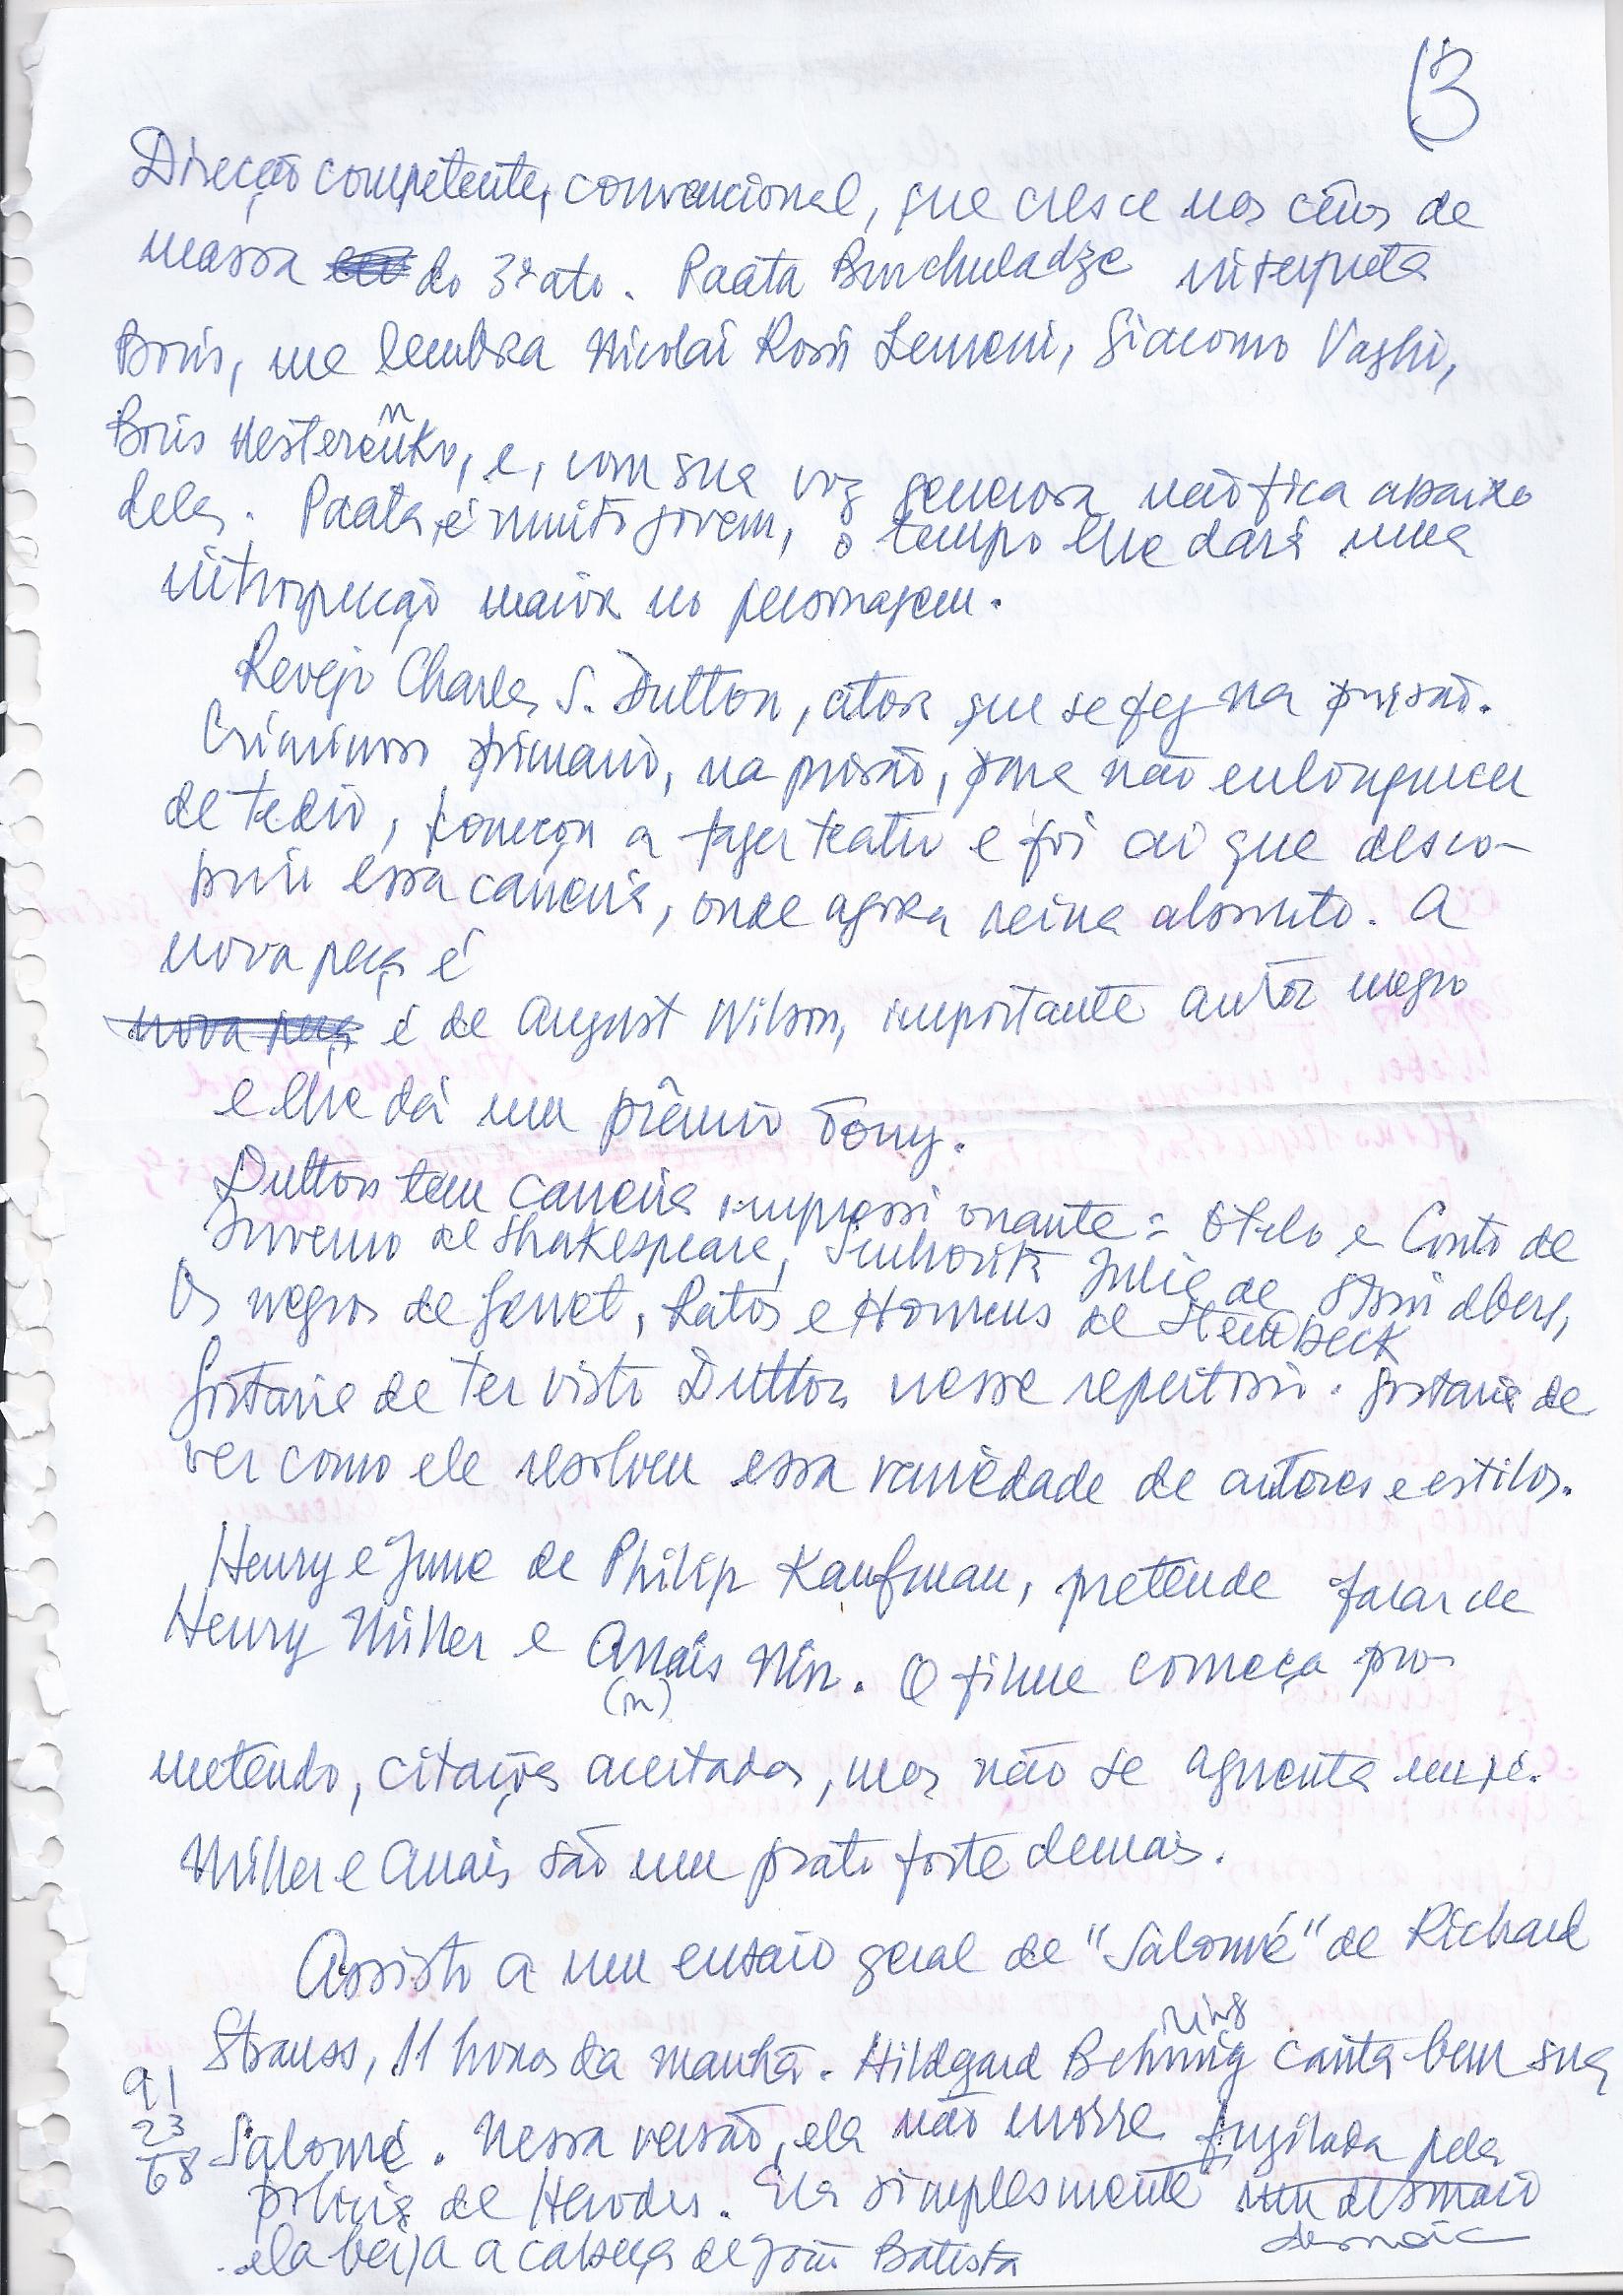 13
Direção competente, convencional, que cresce nas cenas de
massa do 3º ato. Paata Burchuladze interpreta
Boris, me lembra Nicolai Rossi Lemeni, Giacomo Vaghi,
Boris Nesterenko, e, com sua voz generosa não fica abaixo
n
deles. Paata é muito jovem, o tempo lhe dará uma
introspecção maior no personagem.
Revejo Charles S. Dutton, ator que se fez na prisão.
Criminoso primario, na prisão, para não enlouquecer
de tedio, começou a fazer teatro e foi ai que desco-
briu essa carreira, onde agora reina absoluto. A
nova peça é
nova peça é de August Wilson, importante autor negro
e lhe dá um prêmio Tony.
Dutton tem carreira impressionante = Otelo e Conto de
Inverno de Shakespeare, Senhorita Julia de Strindberg,
Os negros de Genet, Ratos e Homens de Steinbeck
Gostaria de ter visto Dutton nesse repertorio. Gostaria de
ver como ele resolveu essa variedade de autores e estilos.
Henry e June de Philip Kaufman, pretende falar de
Henry Miller e Anais Nin. O filme começa pro-
(n)
metendo, citações acertadas, mas não se aguenta
Miller e Anais são um prato forte demais.
Assisto a um ensaio geral de "Salomé" de Richard
Strauss, 11 horas da manhã. Hildgard Behrnig canta bem sua
rens
Salomé. Nessa versão, ela não morre fuzilada pela
policia de Herodes. Ela simplesmente um desmaio
desmaia
ela beija a cabeça de João Batista
91
23
68